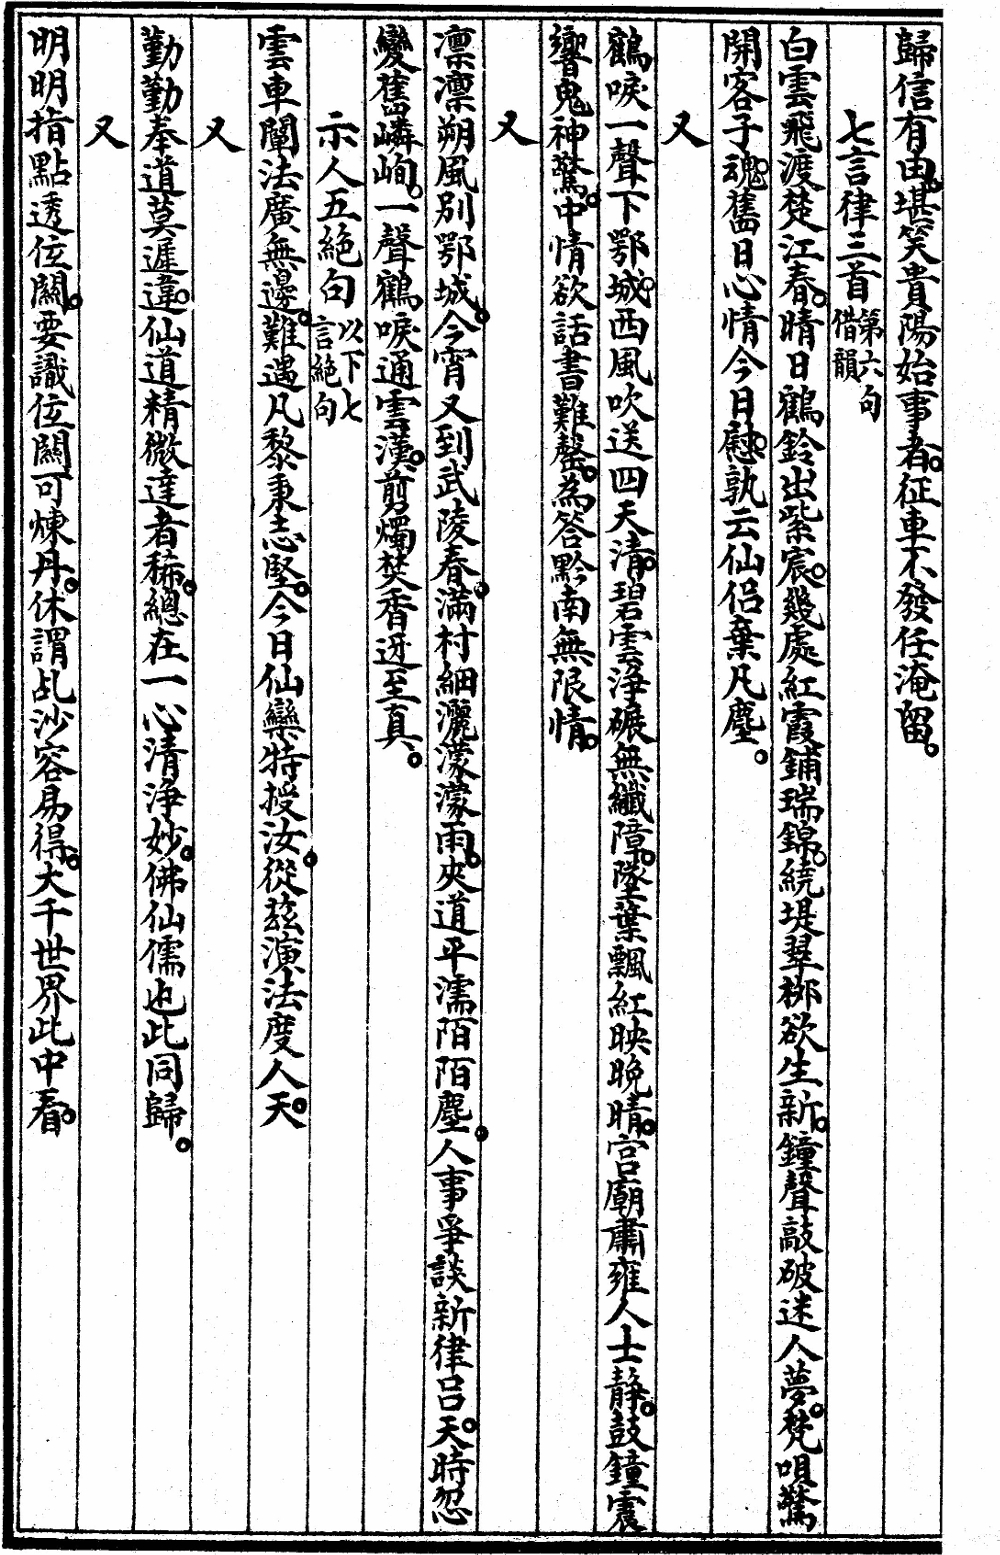 歸信有由堪笑貴陽始事者征車不發任淹留
七言律三首第六句借韻
白雲飛渡楚江春晴日鶴鈴出紫宸幾處紅霞鋪瑞錦繞堤翠柳欲生新鐘聲敲破迷人夢梵唄驚
開客子魂舊日心情今日慰孰云仙侶棄凡塵
又
鶴唳一聲下鄂城西風吹送四天清碧雲淨碾無纖障墜葉飄紅映晚晴宮廟肅雍人士靜鼓鐘震
響鬼神驚中情欲話書難罄為答黔南無限情
又
凛凛朔風別鄂城今宵又到武陵春滿村細灑濛濛雨夾道平濡陌陌塵人事爭談新律呂天時忽
變舊嶙峋一聲鶴唳通雲漢剪燭焚香迓至真
示人五絕句以下七言絕句
雲車闡法廣無邊難遇凡黎秉志堅今日仙欒特授汝從茲演法度人天
又
勤勤奉道莫遲違仙道精微達者稀總在一心清淨妙佛仙儒也此同歸
又
明明指點透位關要識位關可煉丹休謂乩沙容易得大千世界此中看